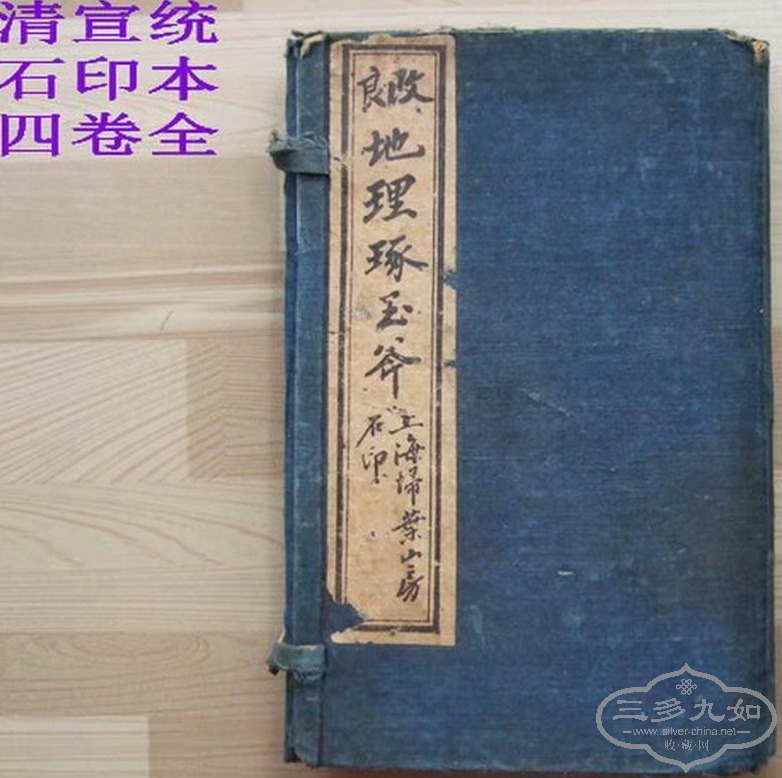 清宣统
石印本
四卷全
改良
地理琢玉斧
上海掃葉山房
石印
三多九如
www.silver-china.net
收·藏·网